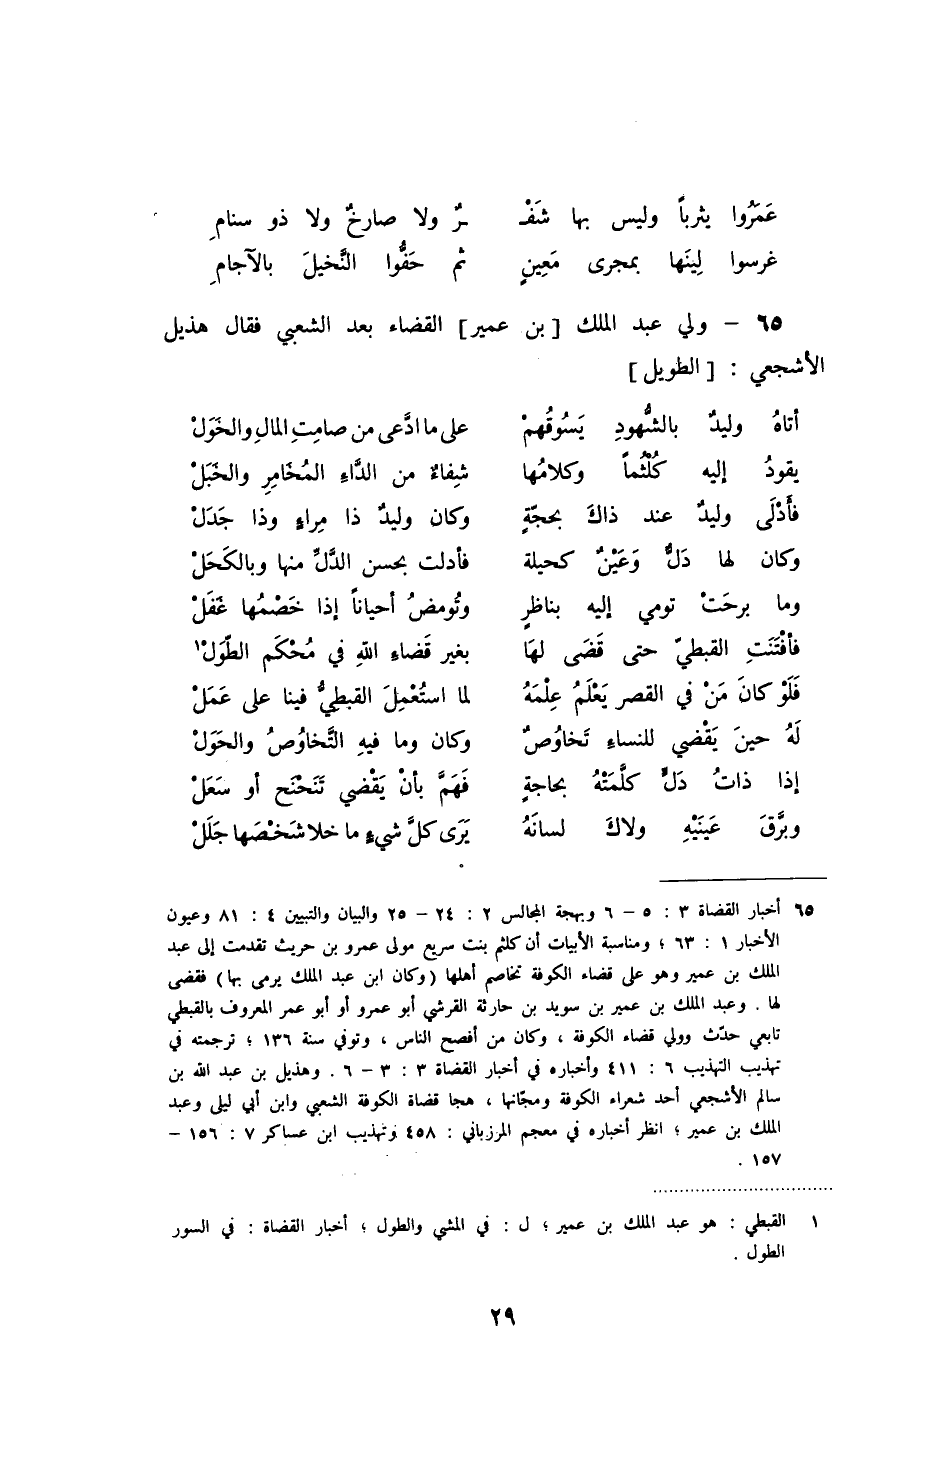 عَمَرُوا يثرباً وليس بها شَفْـ ـرٌ ولا صارخٌ ولا ذو سنامِ
غرسوا لِينَها بمجرى مَعِينٍ ثم حَفُّوا النَّخيلَ بالآجامِ
٦٥ – ولي عبد الملك [بن عمير] القضاء بعد الشعبي فقال هذيل
الأشجعي : [الطويل]
أتاهُ وليدٌ بالشُّهودِ يَسُوقُهمْ على ما ادَّعى من صامِتِ المالِ والخَوَلْ
يقودُ إليه كُلْثُماً وكلامُها شِفاءٌ من الدَّاءِ المُخَامِرِ والخَبَلْ
فأَدْلَى وليدٌ عند ذاكَ بحجّةٍ وكان وليدٌ ذا مِراءٍ وذا جَدَلْ
وكان لها دَلٌّ وَعَيْنٌ كحيلة فأدلت بحسن الدَّلِّ منها وبالكَحَلْ
وما برحَتْ تومي إليه بناظرٍ وتُومضُ أحياناً إذا خَصْمُها غَفَلْ
فأفْتَنَتِ القبطيّ حتى قَضَى لهَا بغير قَضاءِ اللهِ في مُحْكَم الطّوَلْ١
فَلَوْ كانَ مَنْ في القصر يَعْلَمُ عِلْمَهُ لما استُعْمِلَ القبطِيُّ فينا على عَمَلْ
لَهُ حينَ يَقْضي للنساءِ تَخاوُصٌ وكان وما فيهِ التَّخاوُصُ والحَوَلْ
إذا ذاتُ دَلٍّ كلَّمَتْهُ بحاجةٍ فَهَمَّ بأنْ يَقْضي تَنَحْنَح أو سَعَلْ
وبرَّقَ عَينَيْهِ ولاكَ لسانَهُ يَرَى كلَّ شيءٍ ما خلا شَخْصَها جَلَلْ
٦٥ أخبار القضاة ٣ : ٥ – ٦ وبهجة المجالس ٢ : ٢٤ – ٢٥ والبيان والتبيين ٤ : ٨١ وعيون
الأخبار ١ : ٦٣ ؛ ومناسبة الأبيات أن كلثم بنت سريع مولى عمرو بن حريث تقدمت إلى عبد
الملك بن عمير وهو على قضاء الكوفة تخاصم أهلها (وكان ابن عبد الملك يرمى بها) فقضى
لها . وعبد الملك بن عمير بن سويد بن حارثة القرشي أبو عمرو أو أبو عمر المعروف بالقبطي
تابعي حدّث وولي قضاء الكوفة ، وكان من أفصح الناس ، وتوفي سنة ١٣٦ ؛ ترجمته في
تهذيب التهذيب ٦ : ٤١١ وأخباره في أخبار القضاة ٣ : ٣ – ٦ . وهذيل بن عبد الله بن
سالم الأشجعي أحد شعراء الكوفة ومجّانها ، هجا قضاة الكوفة الشعبي وابن أبي ليلى وعبد
الملك بن عمير ؛ انظر أخباره في معجم المرزباني : ٤٥٨ وتهذيب ابن عساكر ٧ : ١٥٦ –
١٥٧ .
١ القبطي : هو عبد الملك بن عمير ؛ ل : في المشي والطول ؛ أخبار القضاة : في السور
الطول .
٢٩